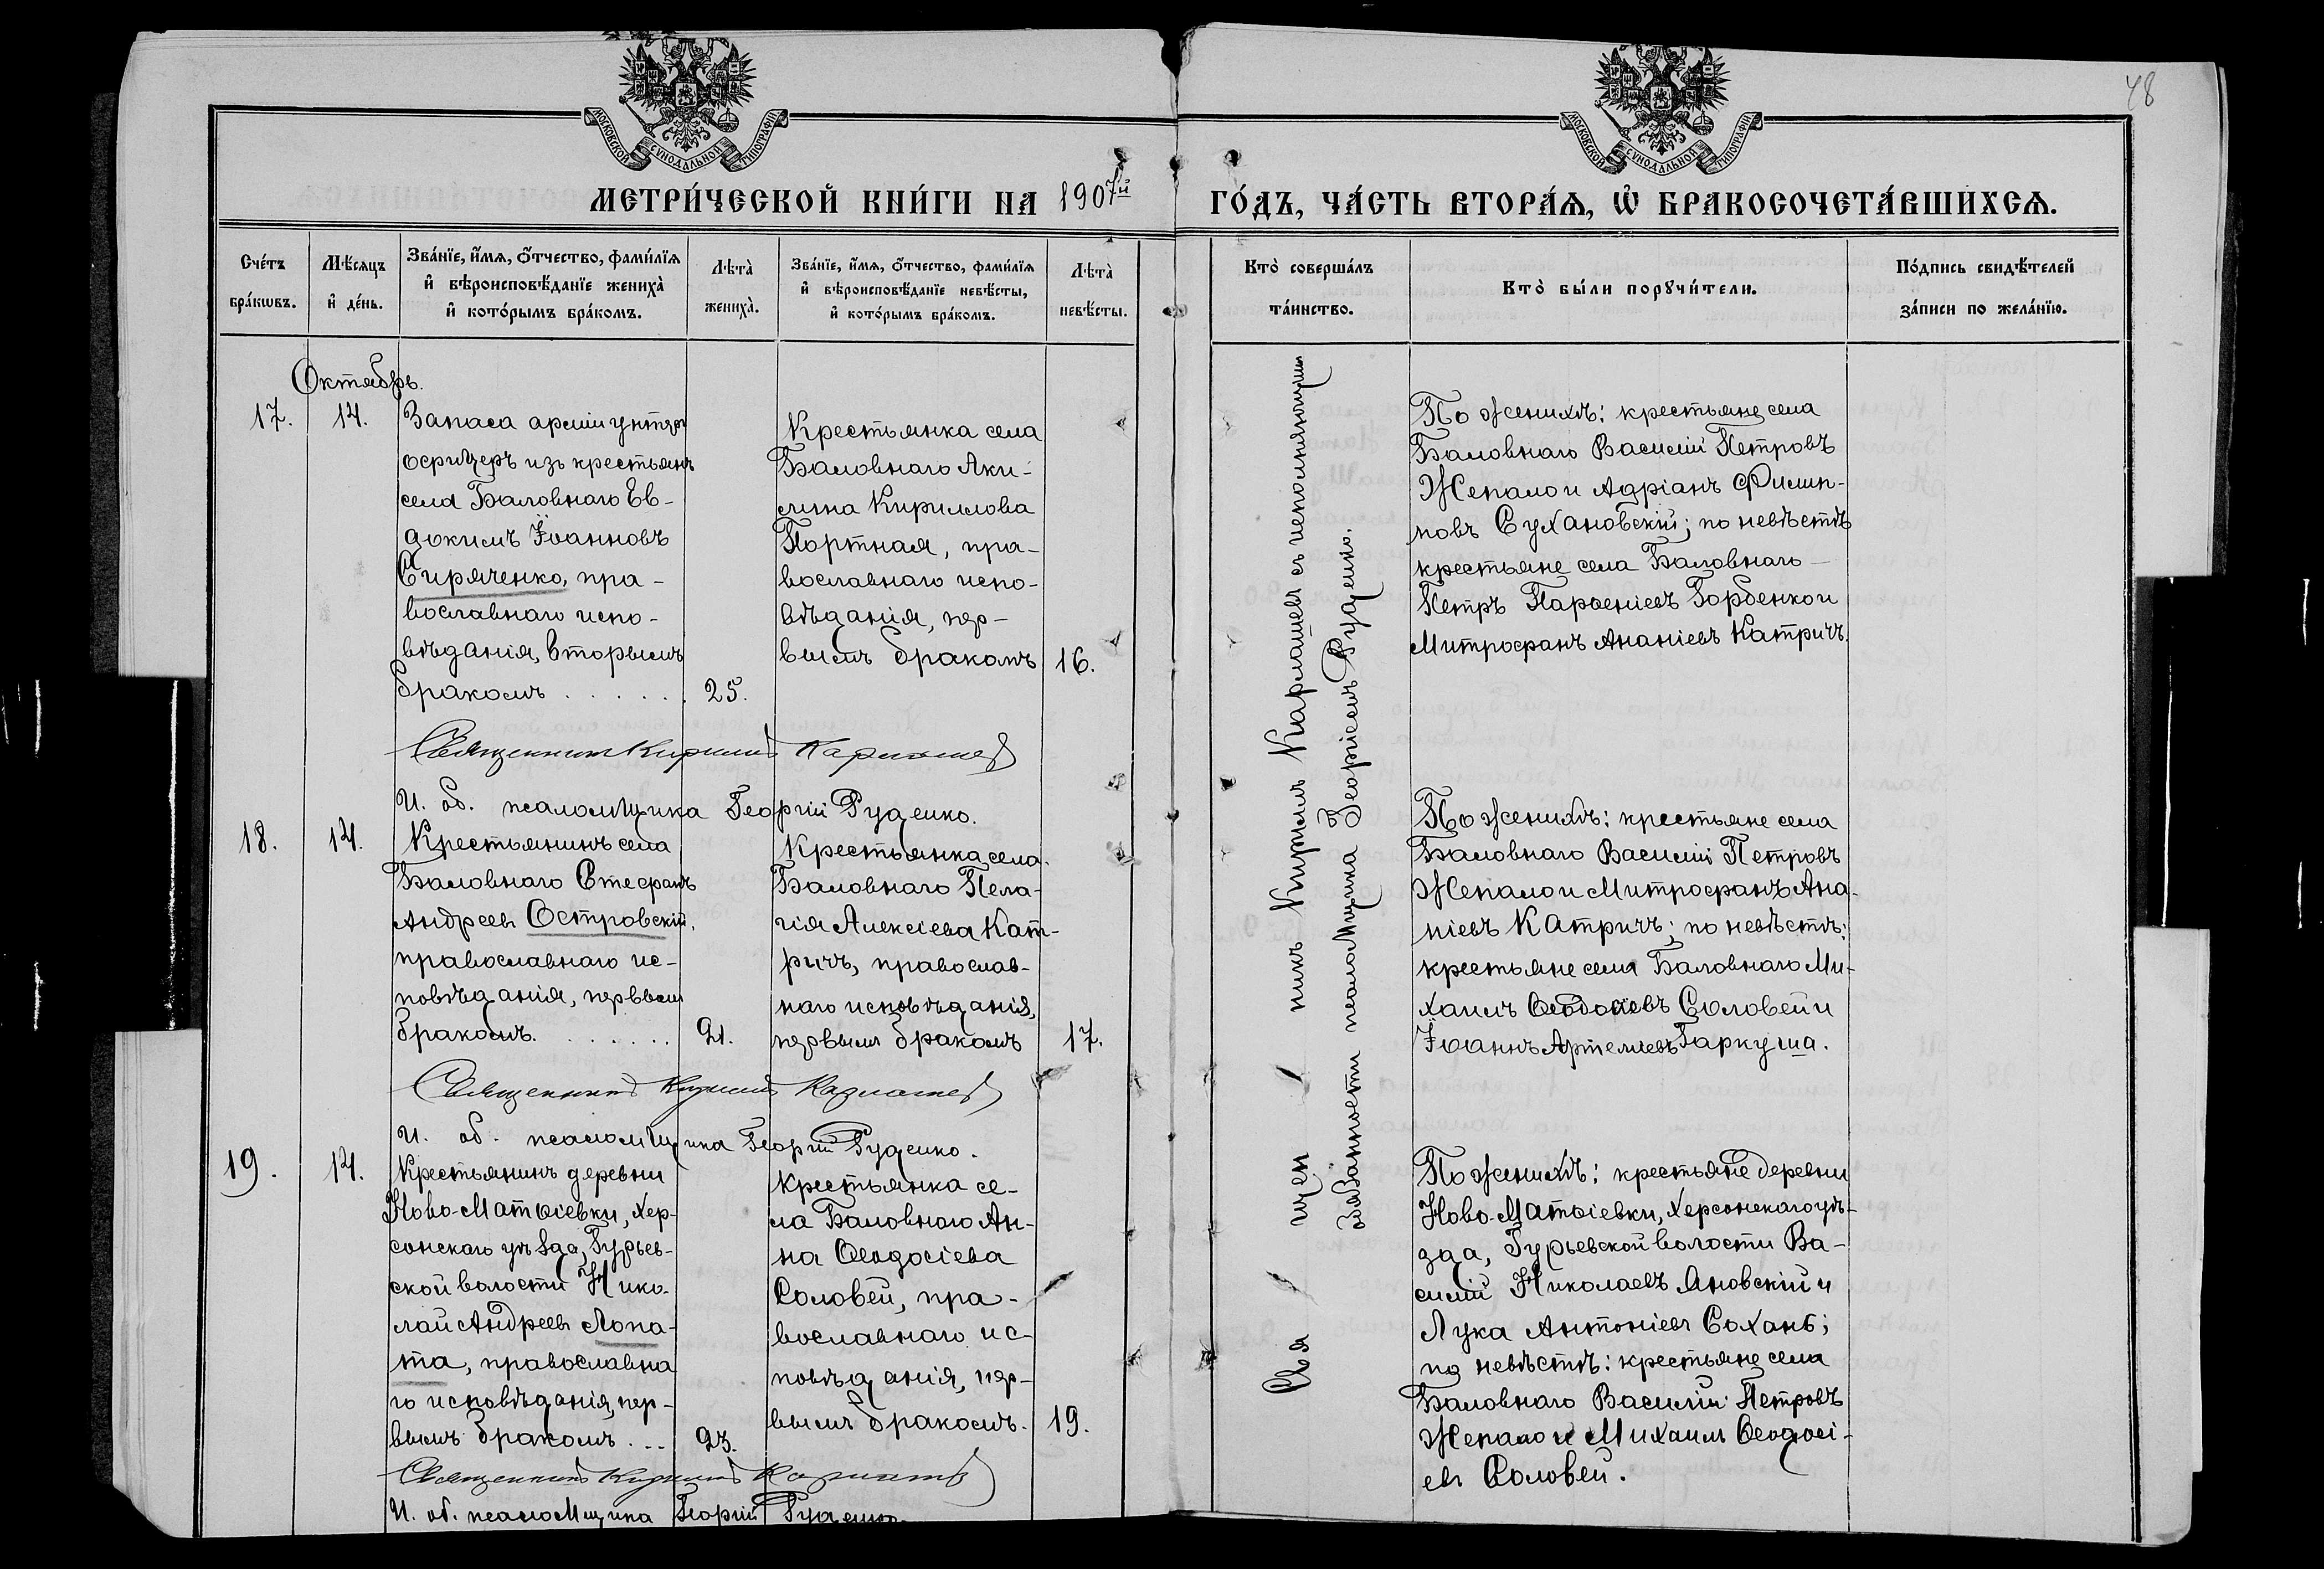 48
МОСКОВСКОЙ СѴНОДАЛЬНОЙ ТИПОГРАФІИ
МОСКОВСКОЙ СѴНОДАЛЬНОЙ ТИПОГРАФІИ
МЕТРИ́ЧЕСКОЙ КНИ́ГИ НА 1907й ГО́ДЪ, ЧА́СТЬ ВТОРА́Я, Ѡ҆ БРАКОСОЧЕТА́ВШИХСЯ.
Сче́тъ
бра́кωвъ.
Мѣ́сяцъ
и҆ де́нь.
Зва́нїе, и҆́мя, ѻ҆́тчество, фами́лїя
и҆ вѣроисповѣ́данїе жениха̀
и҆ кото́рымъ бра́комъ.
Лѣта̀
жениха̀.
Зва́нїе, и҆́мя, ѻ҆́тчество, фами́лїя
и҆ вѣроисповѣ́данїе невѣ́сты,
и҆ кото́рымъ бра́комъ.
Лѣта̀
невѣ́сты.
Кто̀ соверша́лъ
та́инство.
Кто̀ бы́ли порꙋчи́тели.
По́дпись свидѣ́телей
за́писи по жела́нїю.
Октябрь.
17.
14.
Запаса арміи унтеръ
офицеръ изъ крестьянъ
села Баловнаго Ев-
докимъ Іоанновъ
Сиряченко, пра-
вославнаго испо-
вѣданія, вторымъ
бракомъ . . . . . .
25.
Крестьянка села
Баловнаго Аки-
лина Кириллова
Портная, пра-
вославнаго испо-
вѣданія, пер-
вымъ бракомъ
16.
По женихѣ: крестьяне села
Баловнаго Василій Петровъ
Жепало и Адріанъ Филип-
повъ Сухановскій; по невѣстѣ
крестьяне села Баловнаго
Петръ Парѳеніевъ Горбенко и
Митрофанъ Ананіевъ Катричъ.
Священникъ Кириллъ Карпашев
И. об. псаломщика Георгій Руденко.
18.
14.
Крестьянинъ села
Баловнаго Стефанъ
Андреевъ Островскій,
православнаго ис-
повѣданія, первымъ
бракомъ. . . . . . .
21.
Крестьянка села
Баловнаго Пела-
гія Алексіева Кат-
ричъ, православ-
наго исповѣданія,
первымъ бракомъ
17.
По женихѣ: крестьяне села
Баловнаго Василій Петровъ
Жепало и Митрофанъ Ана-
ніевъ Катричъ; по невѣстѣ:
крестьяне села Баловнаго Ми-
хаилъ Ѳеодосіевъ Соловей и
Іоаннъ Артеміевъ Гаркуша.
Священникъ Кириллъ
И. об. псаломщика Георгій Руденко.
19.
14.
Крестьянинъ деревни
Ново-Матѳіевки, Хер-
сонскаго уѣзда, Гурьев-
ской волости Нико-
лай Андреевъ Лопа-
та, православна
го исповѣданія, пер-
вымъ бракомъ . . .
23.
Крестьянка се-
ла Баловнаго Ан-
на Ѳеодосіева
Соловей, пра-
вославнаго ис-
повѣданія, пер-
вымъ бракомъ.
19.
По женихѣ: крестьяне деревни
Ново-Матѳіевки, Херсонскаго уѣ-
зда, Гурьевской волости Ва-
силій Николаевъ Яновскій и
Лука Антоніевъ Сохань;
по невѣстѣ: крестьяне села
Баловнаго Василій Петровъ
Жепало и Михаилъ Ѳеодосі-
евъ Соловей.
Священникъ Кириллъ
И. об. псаломщика Георгій Руденко.
Священникъ Кириллъ съ исполняющимъ
обязанности псаломщика Георгіемъ Руденко.